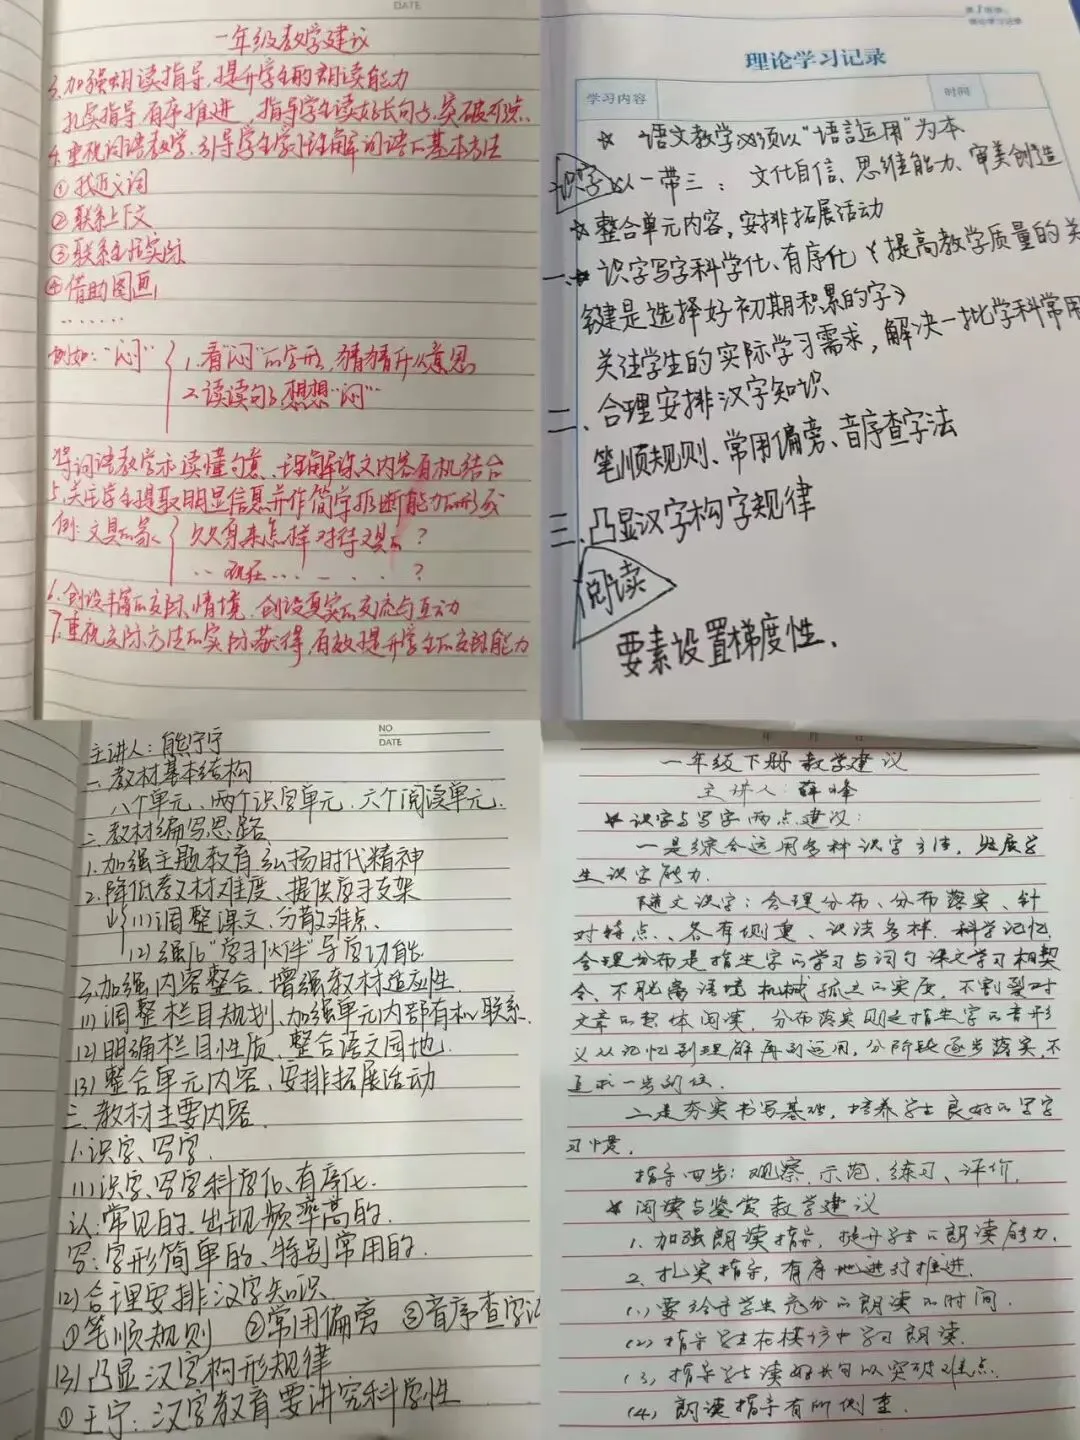 DATE
一年级教学建议
3.加强朗读指导,提升学生的朗读能力
扎实指导,有序推进,指导学生读好长句子,突破难点.
4.重视词语教学,引导学生学习理解词语的基本方法
①找近义词
②联系上下文
③联系生活实际
④借助图画
……
例如:“闷”
1.看“闷”的字形,猜猜什么意思
2.读读句子想想“闷”
将词语教学和读懂句意、理解课文内容有机结合
5.关注学生提取明显信息并作简单推断能力的形成
例:文具的家
原来怎样对待文具的?
现在...?
6.创设丰富的交际情境,创设真实的交流与互动
7.重视交际方法的实际获得,有效提升学生的交际能力
理论学习记录
理论学习记录
学习内容
时间
☆ 语文教学必须以“语言运用”为本
识字 以一带三:文化自信、思维能力、审美创造
☆整合单元内容,安排拓展活动
一、☆识字写字科学化、有序化《提高教学质量的关
键是选择好初期积累的字》
关注学生的实际学习需求,解决一批学科常用
二、合理安排汉字知识
笔顺规则、常用偏旁、音序查字法
三.凸显汉字构字规律
阅读
要素设置梯度性.
NO
DATE
主讲人:熊宁宁
一.教材基本结构
八个单元、两个识字单元.六个阅读单元.
二.教材编写思路
1.加强主题教育弘扬时代精神
2.降低教材难度、提供学习支架
(1)调整课文,分散难点.
(2)强化“学习伙伴”导学功能
3.加强内容整合,增强教材适应性.
(1)调整栏目规划、加强单元内部有机联系.
(2)明确栏目性质、整合语文园地.
(3)整合单元内容、安排拓展活动
三.教材主要内容.
1.识字、写字.
(1)识字、写字科学化、有序化.
认:常见的、出现频率高的.
写:字形简单的、特别常用的.
(2)合理安排汉字知识.
①笔顺规则 ②常用偏旁 ③音序查字
(3)凸显汉字构形规律
①王宁:汉字教育要讲究科学性
年 月 日
一年级下册教学建议
主讲人:薛峰
★ 识字与写字两点建议:
一是综合运用多种识字方法,发展学
生识字能力.
随文识字:合理分布、分布落实、针
对特点、各有侧重、识法多样、科学记忆.
合理分布是指生字的学习与词句课文学习相契
合,不脱离语境机械孤立的实质,不割裂对
文章的整体阅读,分布落实则是指生字的音形
义从记忆到理解再到运用,分阶段逐步落实,不
追求一步到位.
二是夯实书写基础,培养学生良好的写字
习惯.
指导四步:观察、示范、练习、评价.
★ 阅读与鉴赏教学建议
1.加强朗读指导,提升学生的朗读能力.
2.扎实指导,有序地进行推进.
(1)要给予学生充分的朗读的时间.
(2)指导学生在模仿中学习朗读.
(3)指导学生读好长句以突破难点.
(4)朗读指导有所侧重.